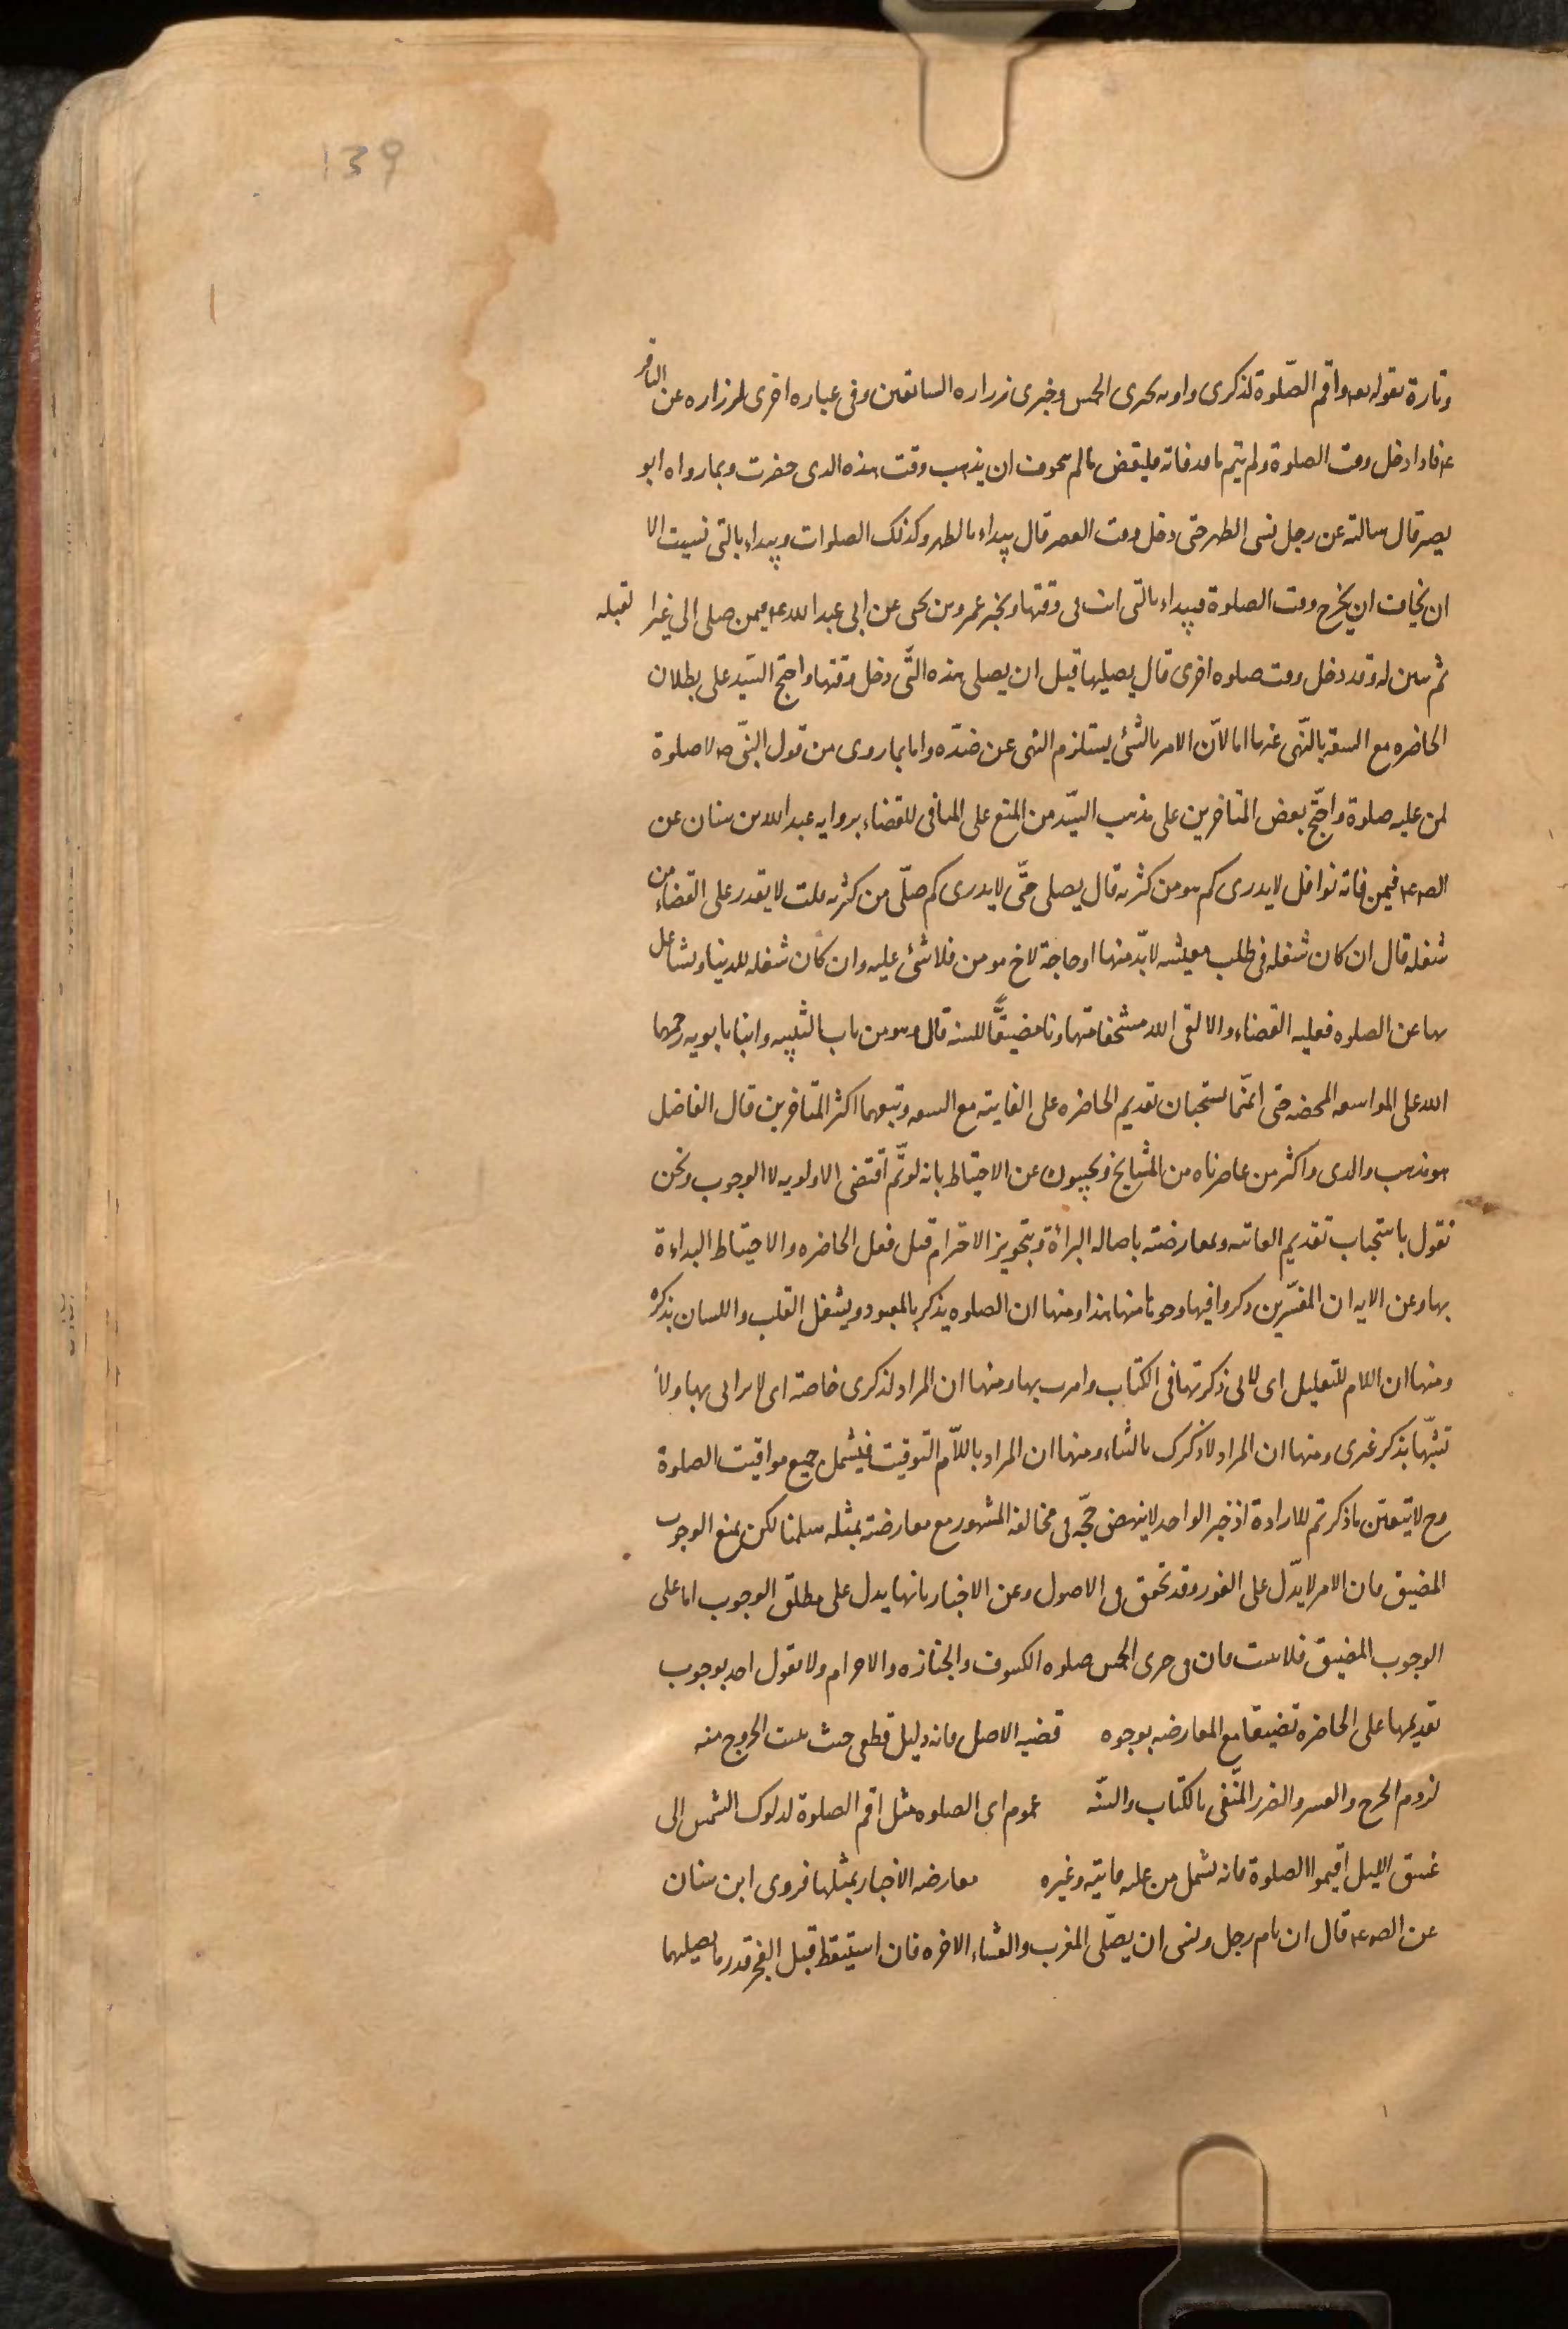 139
وتارة بقوله تعه واقم الصّلوة لذكرى واوله بحرى الخمس وخبرى زراره السابقين وفى عباره اخرى لزراره عن الباقر
عه فاذا دخل وقت الصلوة ولم يتم ما قد فاته فليقض ما لم يتخوف ان يذهب وقت هذه الذى حضرت وبما رواه ابو
بصير قال سالته عن رجل نسى الظهر حتى دخل وقت العصر قال يبداء بالظهر وكذلك الصلوات ويبداء بالتى نسيت الا
ان تخاف ان يخرج وقت الصلوة فيبداء بالتى انت فى وقتها وبخبر عمرو بن يحيى عن ابى عبد الله عه فيمن صلى الى غير القبله
ثم تبين له وقد دخل وقت صلوه اخرى قال يصليها قبل ان يصلى هذه التّى دخل وقتها واحتج السّيد على بطلان
الحاضره مع السعة بالنّهى عنها اما لانّ الامر بالشئ يستلزم النهى عن ضدّه واما بما روى من قول النبّى صه لا صلوة
لمن عليه صلوة واحتّج بعض المتاخرين على مذهب السيّد من المنع على المنافى للقضاء بروايه عبد الله بن سنان عن
الصه عه فيمن فاته نوافل لا يدرى كم هو من كثرته قال يصلى حتّى لا يدرى كم صلّى من كثرته قلت لا يقدر على القضاء من
شغله قال ان كان شغله فى طلب معيشه لا بدّ منها او حاجة لاخ مومن فلا شئ عليه وان كان شغله للدنيا وتشاغل
بها عن الصلوه فعليه القضاء والا لقى الله مستخفا متهاونا مضيعًّا للسنه قال وهو من باب التنبيه وابنا بابويه رحمهما
الله على المواسعه المحضه حتى انّهما يستحبان تقديم الحاضره على الفايته مع السعه وتبعهما اكثر المتاخرين قال الفاضل
هو مذهب والدى واكثر من عاصرناه من المشايخ ويجيبون عن الاحتياط بانه لو تّم اقتضى الاولويه لا الوجوب ونحن
نقول باستحباب تقديم الفائته وبمعارضته باصاله البرائة وبتجويز الاخترام قبل فعل الحاضره والاحتياط البداءة
بها وعن الايه ان المفسّرين ذكروا فيها وجوها منها هذا ومنها ان الصلوه يذكر بالمعبود ويشغل القلب واللسان بذكره
ومنها ان اللام للتعليل اى لانى ذكرتها فى الكتاب وامرت بها ومنها ان المراد لذكرى خاصة اى لا ترائى بها ولا
تشبّها بذكر غيرى ومنها ان المراد لاذكرك بالثناء ومنها ان المراد باللاّم التوقيت فيشمل جميع مواقيت الصلوة
وح لا يتعيّن ما ذكرتم للارادة اذ خبر الواحد لا ينهض حجّه فى مخالفة المشهور مع معارضته بمثله سلمنا لكن نمنع الوجوب
المضيق فان الامر لا يدّل على الفور وقد تحقق فى الاصول وعن الاخبار بانها يدل على مطلق الوجوب اما على
الوجوب المضيق فلا يثبت فان فى حرى الخمس صلوه الكسوف والجنازه والاحرام ولا يقول احد بوجوب
تقديمها على الحاضره تضيقا مع المعارضه بوجوه قضيه الاصل فانه دليل قطعى حيث يثبت الخروج منه
لزوم الحرج والعسر والضرر المنّفى بالكتاب والسنّه عموم اى الصلوه مثل اقم الصلوة لدلوك الشمس الى
غسق الليل اقيموا الصلوة فانه يشمل من عليه فايته وغيره معارضه الاخبار بمثلها فروى ابن سنان
عن الصه عه قال ان نام رجل ونسى ان يصلّى المغرب والعشاء الاخره فان استيقظ قبل الفجر قدر ما يصليهما